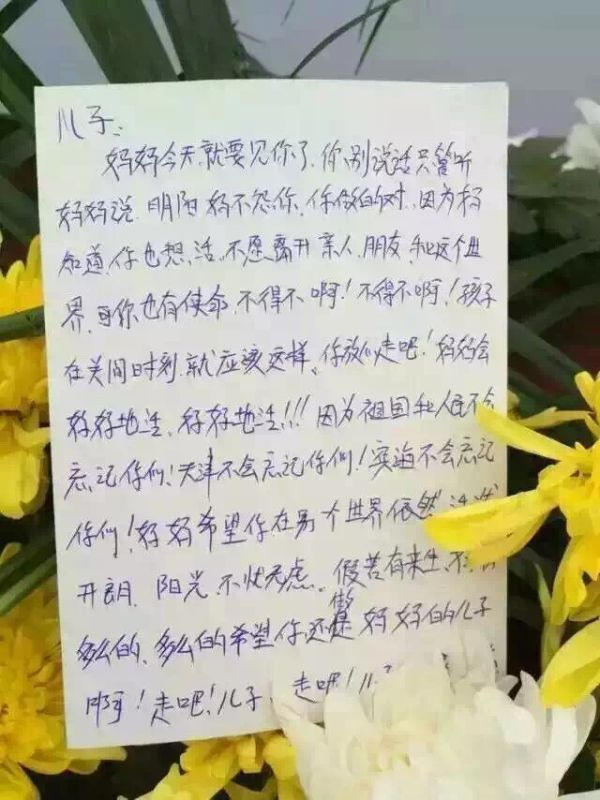 儿子、
妈妈今天就要见你了、你别说话只管听
妈妈说.明阳妈不怨你、你做的对、因为妈
知道、你也想、活、不愿离开亲人、朋友、和这个世
界、可你也有使命、不得不啊！不得不啊！孩子
在关间时刻、就应该这样、你放心走吧！妈妈会
好好地活、好好地活!!! 因为祖国和人民不会
忘记你们！天津不会忘记你们！滨海不会忘记
你们！妈妈希望你在另一个世界依然
开朗、阳光、不忧无虑。假若有来生、
多么的、多么的希望你还做妈妈的儿子
啊！走吧！儿子、走吧！儿